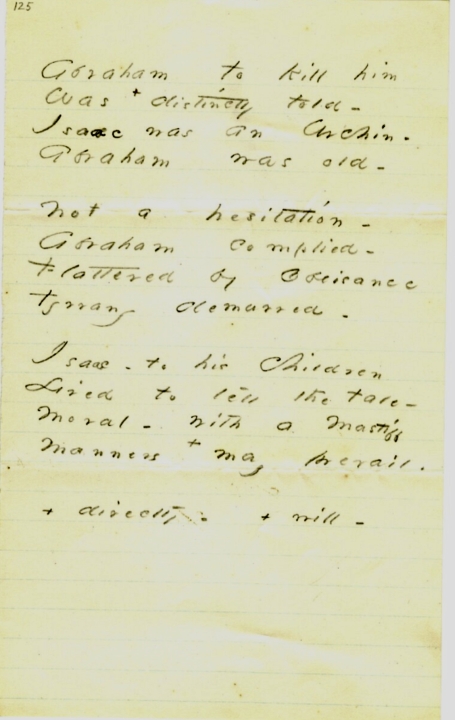 125
Abraham to kill him
Was + distinctly told -
Isaac was an Urchin.
Abraham was old -
Not a hesitation -
Abraham complied -
Flattered by Obeisance
Tyranny demurred -
Isaac - to his Children
Lived to tell the tale -
Moral - with a Mastiff
Manners + may prevail.
+ directly - + will -